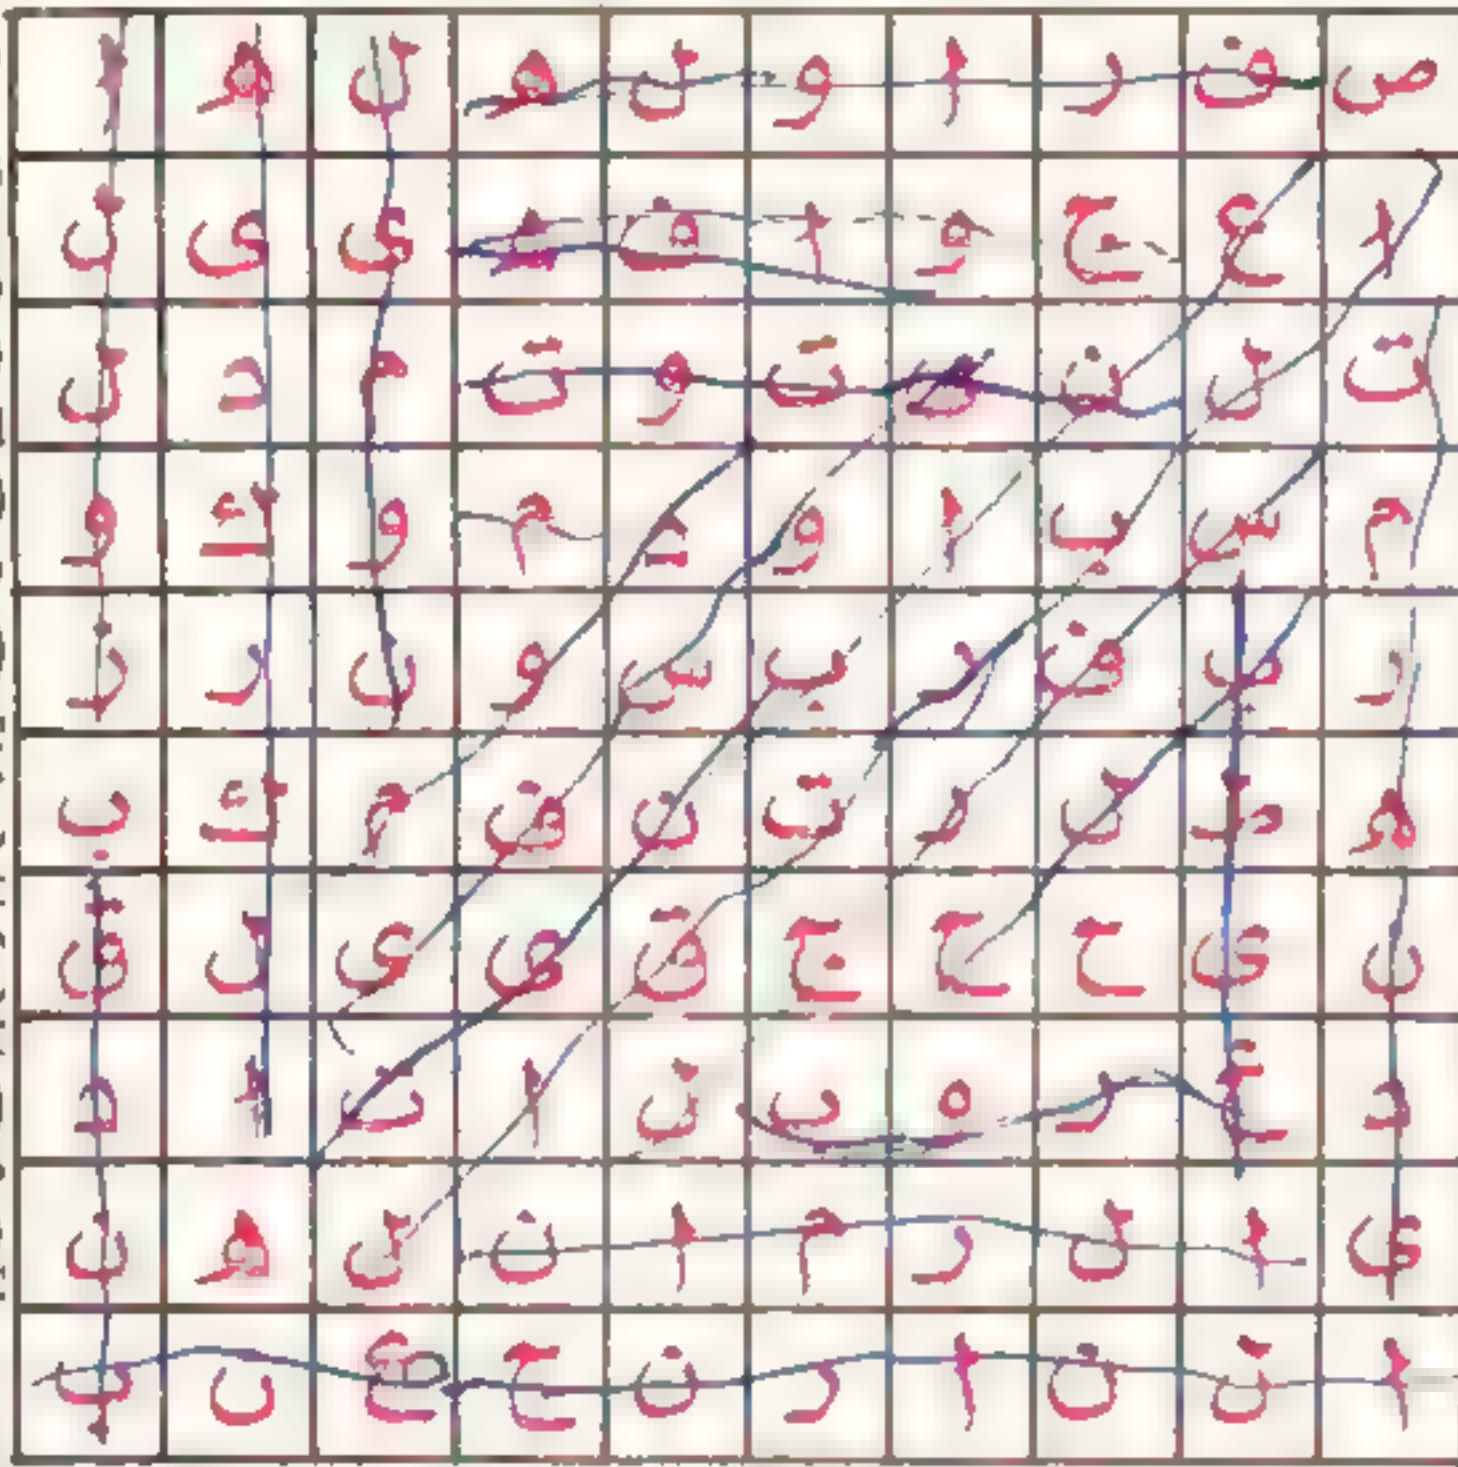 ص ف ر ا و ل ه ل ه ا
ا ع ج و ا ف ء ي ي ل
ت ل ن ض ت و ت م د ل
م س ب ا و ء م و ك و
ر ض ف د ب س و ن ر ز
ه ط ل ر ت ن ف م ك ب
ن ي ح ح ج ق ي ي ل ق
د ع ر ه ب ل ا ت ا د
ي ا ل ر م ا ن ل ه ن
ا ل ن ا ر ن ج ع ن ب